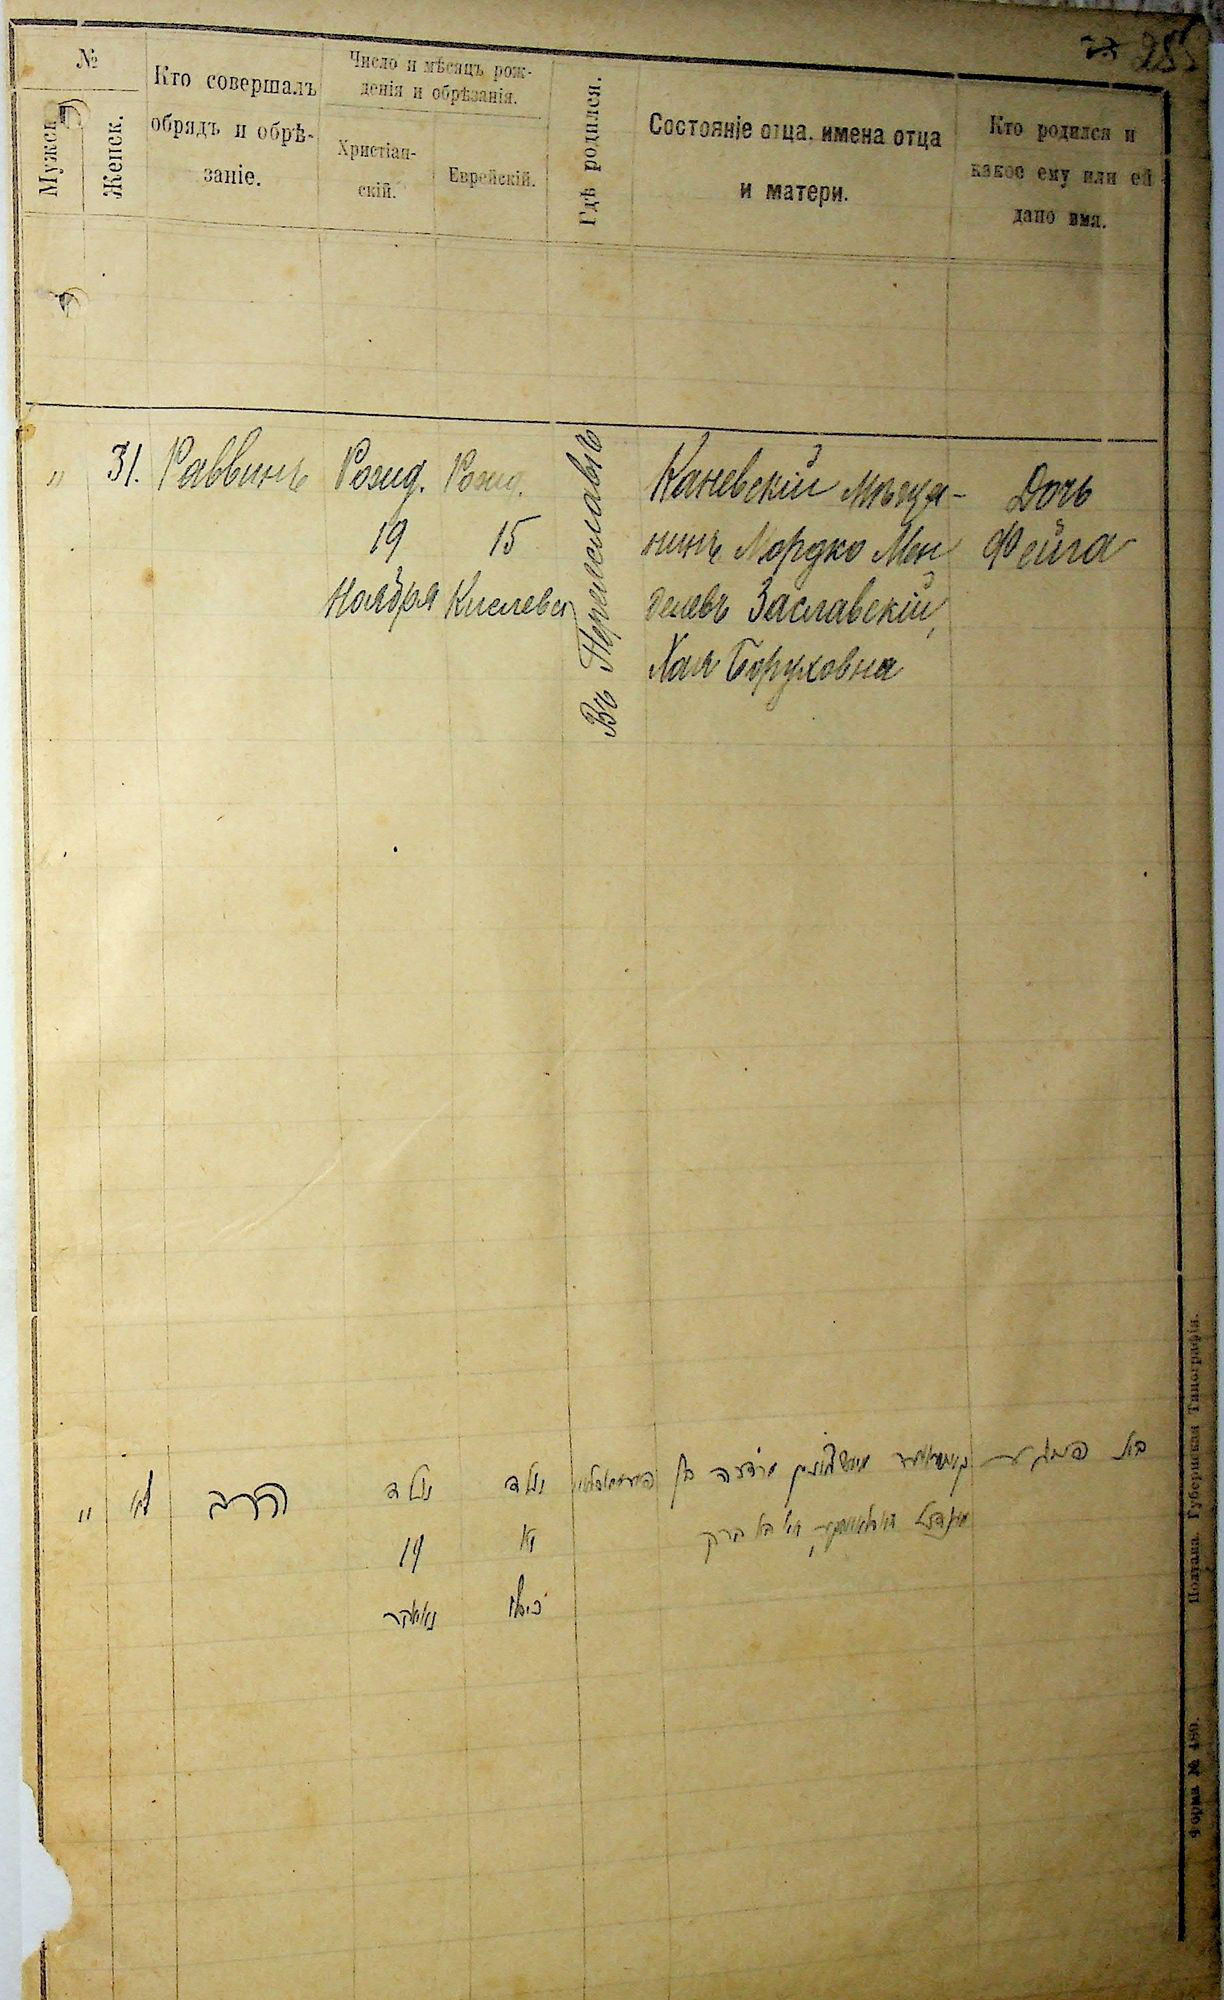 285
№
Мужск.
Женск.
Кто совершалъ
обрядъ и обрѣ-
заніе.
Число и мѣсяцъ рож-
денія и обрѣзанія.
Христіан-
скій.
Еврейскій.
Гдѣ родился.
Состояніе отца, имена отца
и матери.
Кто родился и
какое ему или ей
дано имя.
"
31.
Раввинъ
Рожд.
19
Ноября
Рожд.
15
Кислева
Въ Переяславѣ
Каневскій мѣща-
нинъ Мордко Мен
делевъ Заславскій,
Хая Боруховна
Дочь
Фейга
"
הרב
נולד
19
נולד
כיסלו
מרדכה בן
מענדל
Полтава. Губернская Типографія.
Форма № 480.